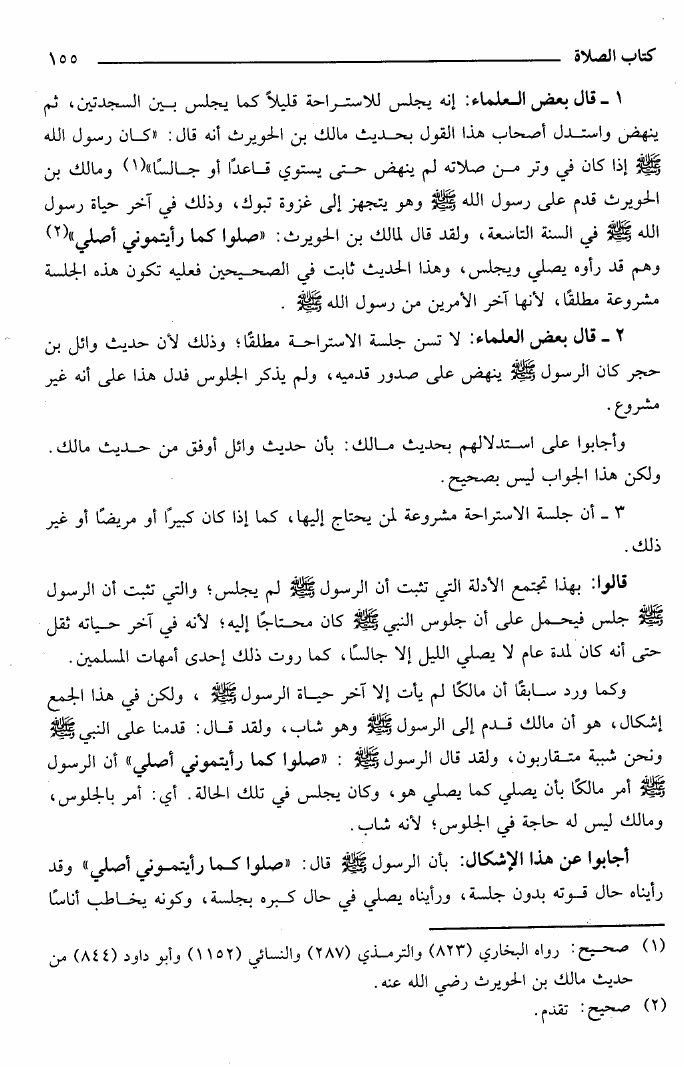 كتاب الصلاة ١٥٥
١ ـ قال بعض العلماء: إنه يجلس للاستراحة قليلاً كما يجلس بين السجدتين، ثم
ينهض واستدل أصحاب هذا القول بحديث مالك بن الحويرث أنه قال: «كان رسول الله
ﷺ إذا كان في وتر من صلاته لم ينهض حتى يستوي قاعدًا أو جالسًا»(١) ومالك بن
الحويرث قدم على رسول الله ﷺ وهو يتجهز إلى غزوة تبوك، وذلك في آخر حياة رسول
الله ﷺ في السنة التاسعة، ولقد قال لمالك بن الحويرث: «صلوا كما رأيتموني أصلي»(٢)
وهم قد رأوه يصلي ويجلس، وهذا الحديث ثابت في الصحيحين فعليه تكون هذه الجلسة
مشروعة مطلقًا، لأنها آخر الأمرين من رسول الله ﷺ .
٢ ـ قال بعض العلماء: لا تسن جلسة الاستراحة مطلقًا؛ وذلك لأن حديث وائل بن
حجر كان الرسول ﷺ ينهض على صدور قدميه، ولم يذكر الجلوس فدل هذا على أنه غير
مشروع.
وأجابوا على استدلالهم بحديث مالك: بأن حديث وائل أوفق من حديث مالك.
ولكن هذا الجواب ليس بصحيح.
٣ ـ أن جلسة الاستراحة مشروعة لمن يحتاج إليها، كما إذا كان كبيرًا أو مريضًا أو غير
ذلك.
قالوا: بهذا تجتمع الأدلة التي تثبت أن الرسول ﷺ لم يجلس؛ والتي تثبت أن الرسول
ﷺ جلس فيحمل على أن جلوس النبي ﷺ كان محتاجًا إليه؛ لأنه في آخر حياته ثقل
حتى أنه كان لمدة عام لا يصلي الليل إلا جالسًا، كما روت ذلك إحدى أمهات المسلمين.
وكما ورد سابقًا أن مالكًا لم يأت إلا آخر حياة الرسول ﷺ ، ولكن في هذا الجمع
إشكال، هو أن مالك قدم إلى الرسول ﷺ وهو شاب، ولقد قال: قدمنا على النبي ﷺ
ونحن شببة متقاربون، ولقد قال الرسول ﷺ : «صلوا كما رأيتموني أصلي» أن الرسول
ﷺ أمر مالكًا بأن يصلي كما يصلي هو، وكان يجلس في تلك الحالة. أي: أمر بالجلوس،
ومالك ليس له حاجة في الجلوس؛ لأنه شاب.
أجابوا عن هذا الإشكال: بأن الرسول ﷺ قال: «صلوا كما رأيتموني أصلي» وقد
رأيناه حال قوته بدون جلسة، ورأيناه يصلي في حال كبره بجلسة، وكونه يخاطب أناسًا
(١) صحيح: رواه البخاري (٨٢٣) والترمذي (٢٨٧) والنسائي (١١٥٢) وأبو داود (٨٤٤) من
حديث مالك بن الحويرث رضي الله عنه.
(٢) صحيح: تقدم.